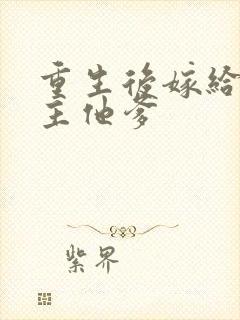 重生後嫁給
主他爹
紫界